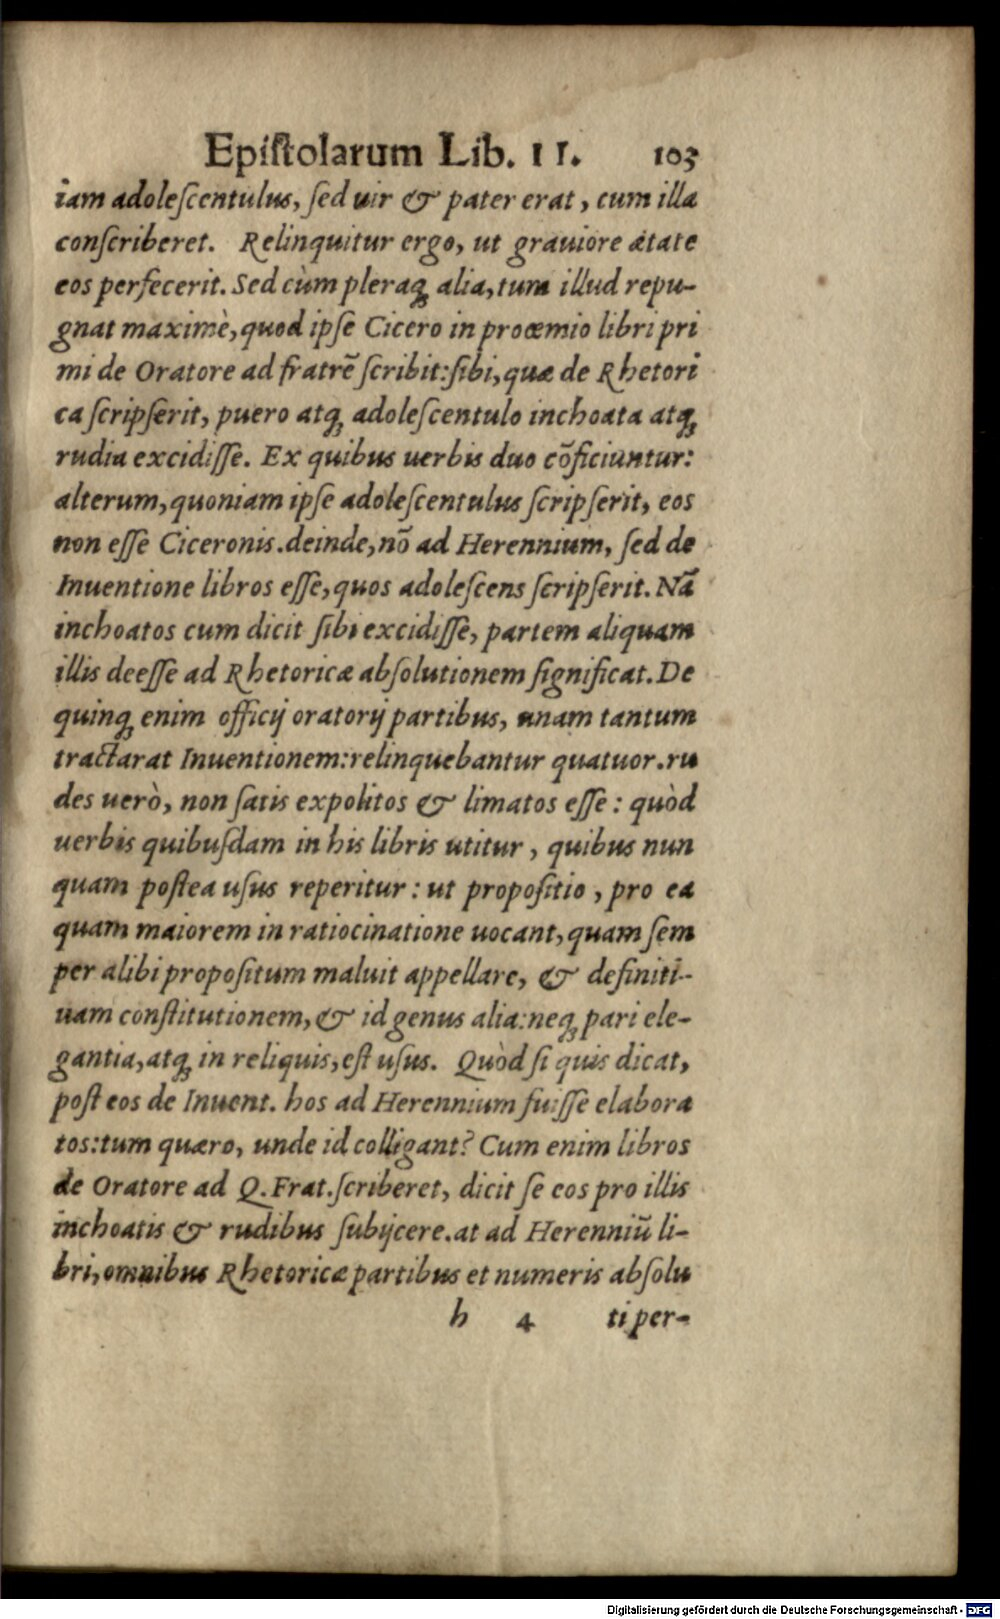 Epiſtolarum Lib. II. 103
iam adoleſcentulus, ſed uir & pater erat, cum illa
conſcriberet. Relinquitur ergo, ut grauiore ætate
eos perfecerit. Sed cùm pleraq; alia, tum illud repu-
gnat maximè, quod ipſe Cicero in procemio libri pri
mi de Oratore ad fratrẽ ſcribit: ſibi, quæ de Rhetori
ca ſcripſerit, puero atq; adoleſcentulo inchoata atq;
rudia excidiſſe. Ex quibus uerbis duo cõficiuntur:
alterum, quoniam ipſe adoleſcentulus ſcripſerit, eos
non eſſe Ciceronis. deinde, nõ ad Herennium, ſed de
Inuentione libros eſſe, quos adoleſcens ſcripſerit. Nã
inchoatos cum dicit ſibi excidiſſe, partem aliquam
illis deeſſe ad Rhetoricæ abſolutionem ſignificat. De
quinq; enim officij oratorij partibus, unam tantum
tractarat Inuentionem: relinquebantur quatuor. ru
des uerò, non ſatis expolitos & limatos eſſe: quòd
uerbis quibuſdam in his libris utitur, quibus nun
quam poſtea uſus reperitur: ut propoſitio, pro ea
quam maiorem in ratiocinatione uocant, quam ſem
per alibi propoſitum maluit appellare, & definiti-
uam conſtitutionem, & id genus alia: neq; pari ele-
gantia, atq; in reliquis, eſt uſus. Quòd ſi quis dicat,
poſt eos de Inuent. hos ad Herennium fuiſſe elabora
tos: tum quæro, unde id colligant? Cum enim libros
de Oratore ad Q. Frat. ſcriberet, dicit ſe eos pro illis
inchoatis & rudibus ſubijcere. at ad Herenniũ li-
bri, omnibus Rhetoricæ partibus et numeris abſolu
h 4 ti per-
Digitalisierung gefördert durch die Deutsche Forschungsgemeinschaft - DFG